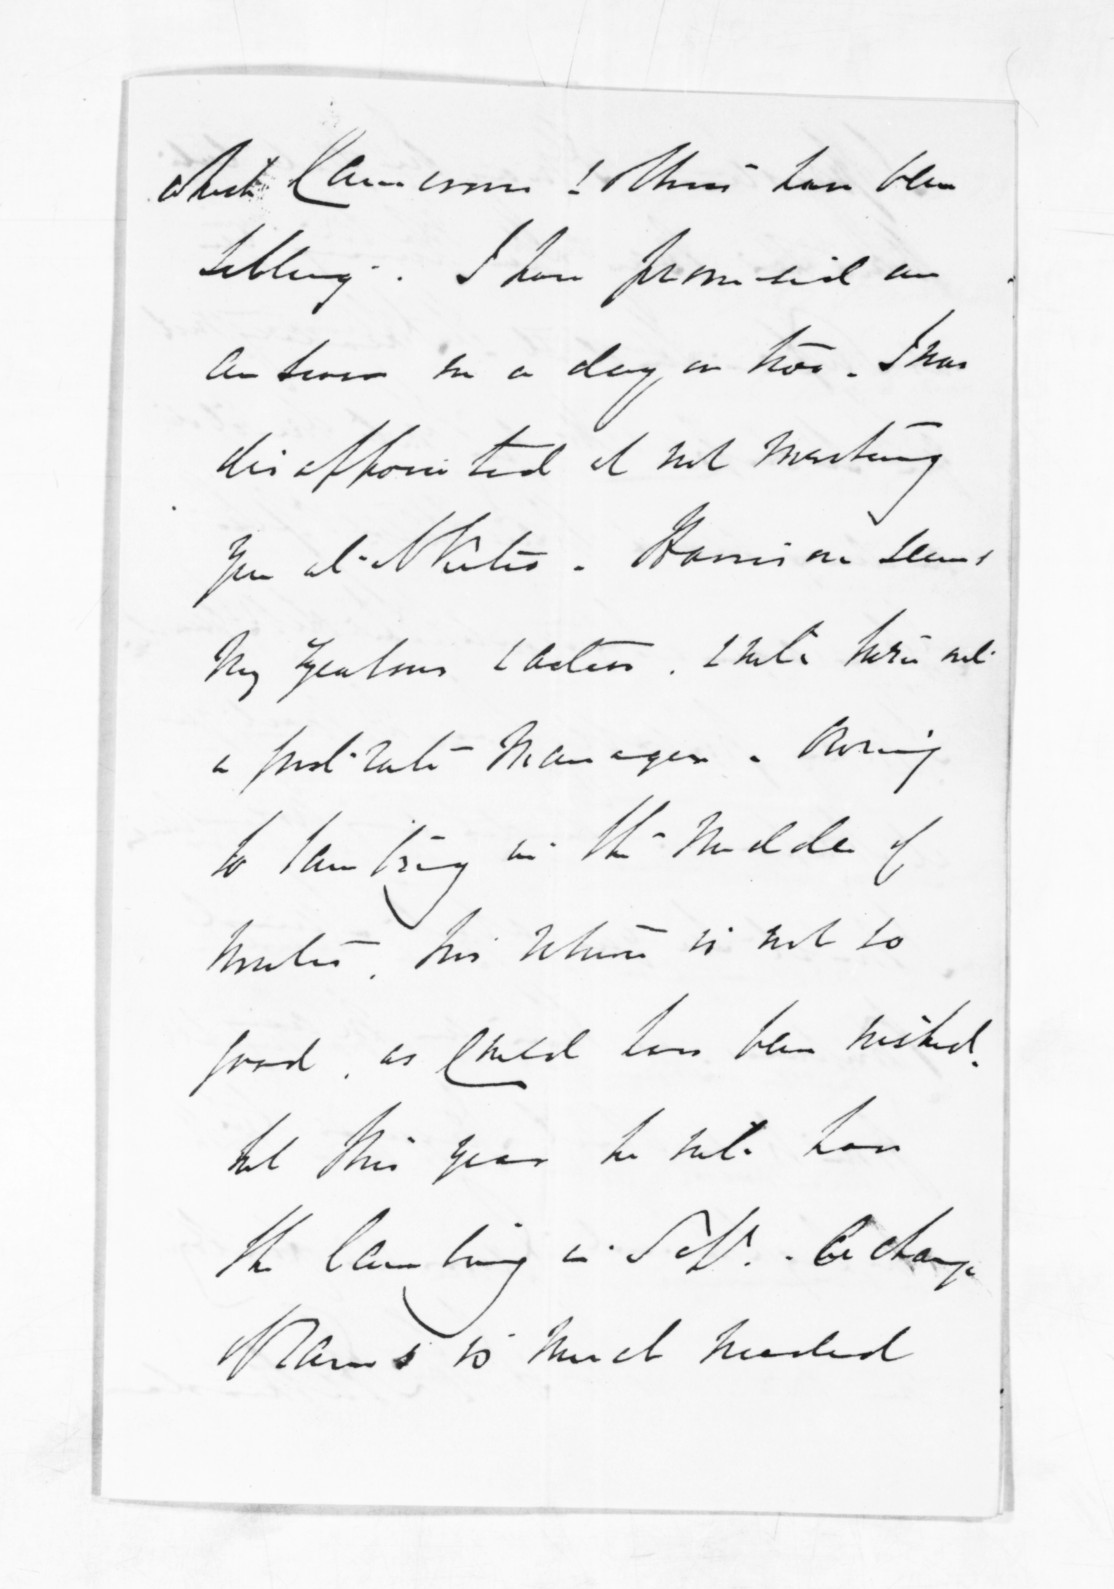 which Cameron & others have been
selling. I have promised an
answer in a day or two. I was
disappointed at not meeting
you at
very zealous & active. & will turn out
a first rate Manager. Owing
to lambing in the middle of
winter, his return is not so
good, as could have been wished.
but this year he will have
the lambing in Sept. A change
of Rams is much needed